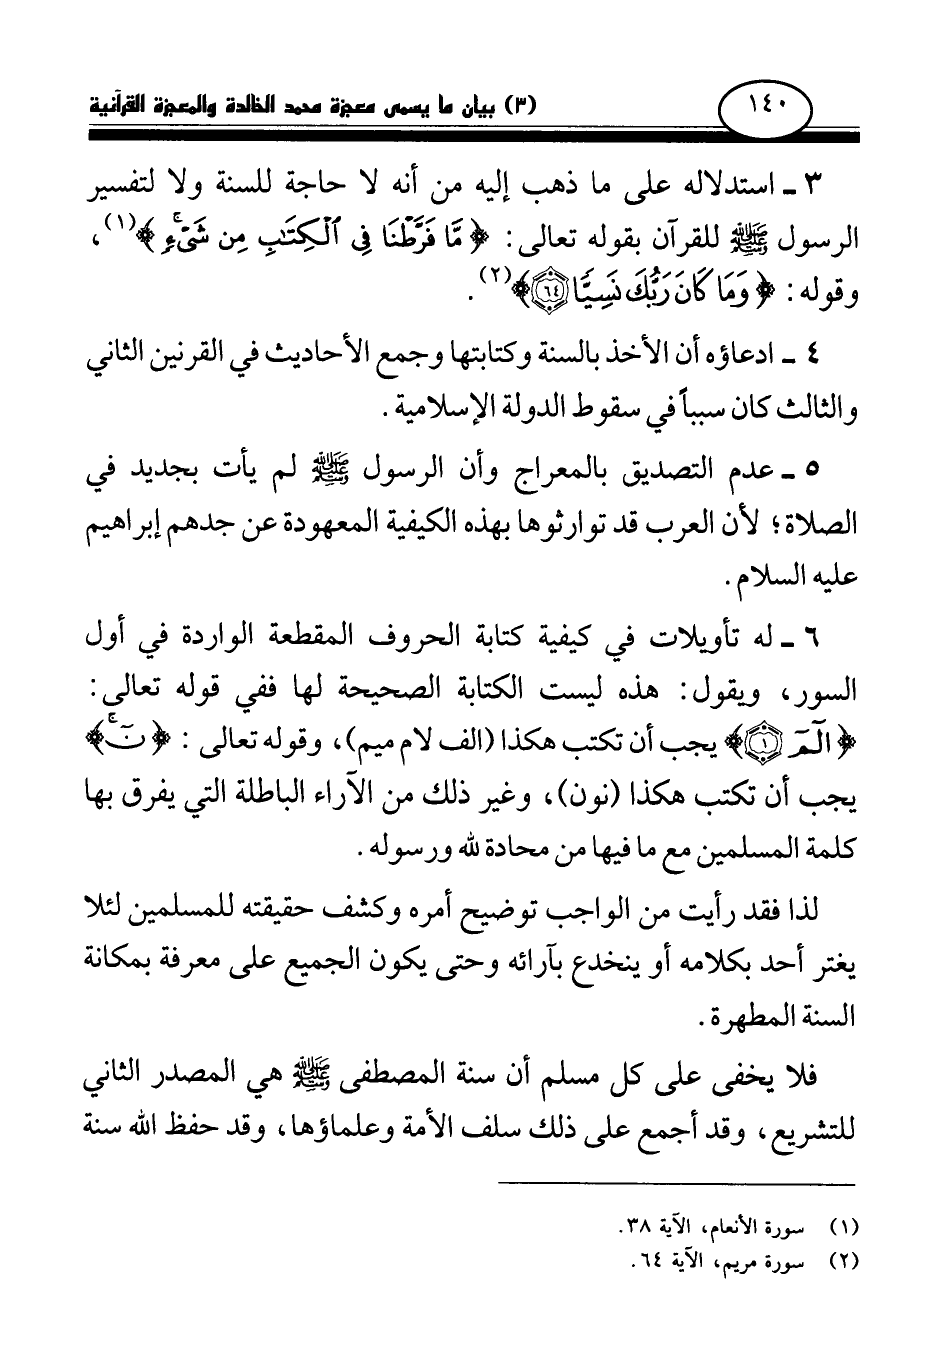 ١٤٠
(٣) بيان ما يسمى معجزة محمد الخالدة والمعجزة القرآنية
٣ ـ استدلاله على ما ذهب إليه من أنه لا حاجة للسنة ولا لتفسير
الرسول ﷺ للقرآن بقوله تعالى: ﴿مَّا فَرَّطْنَا فِي ٱلْكِتَٰبِ مِن شَيْءٍ﴾(١)،
وقوله: ﴿وَمَا كَانَ رَبُّكَ نَسِيًّا ٦٤﴾(٢).
٤ ـ ادعاؤه أن الأخذ بالسنة وكتابتها وجمع الأحاديث في القرنين الثاني
والثالث كان سبباً في سقوط الدولة الإسلامية.
٥ ـ عدم التصديق بالمعراج وأن الرسول ﷺ لم يأت بجديد في
الصلاة؛ لأن العرب قد توارثوها بهذه الكيفية المعهودة عن جدهم إبراهيم
عليه السلام.
٦ ـ له تأويلات في كيفية كتابة الحروف المقطعة الواردة في أول
السور، ويقول: هذه ليست الكتابة الصحيحة لها ففي قوله تعالى:
﴿الٓمٓر ١﴾ يجب أن تكتب هكذا (الف لام ميم)، وقوله تعالى: ﴿نٓ ۚ﴾
يجب أن تكتب هكذا (نون)، وغير ذلك من الآراء الباطلة التي يفرق بها
كلمة المسلمين مع ما فيها من محادة لله ورسوله.
لذا فقد رأيت من الواجب توضيح أمره وكشف حقيقته للمسلمين لئلا
يغتر أحد بكلامه أو ينخدع بآرائه وحتى يكون الجميع على معرفة بمكانة
السنة المطهرة.
فلا يخفى على كل مسلم أن سنة المصطفى ﷺ هي المصدر الثاني
للتشريع، وقد أجمع على ذلك سلف الأمة وعلماؤها، وقد حفظ الله سنة
(١) سورة الأنعام، الآية ٣٨.
(٢) سورة مريم، الآية ٦٤.